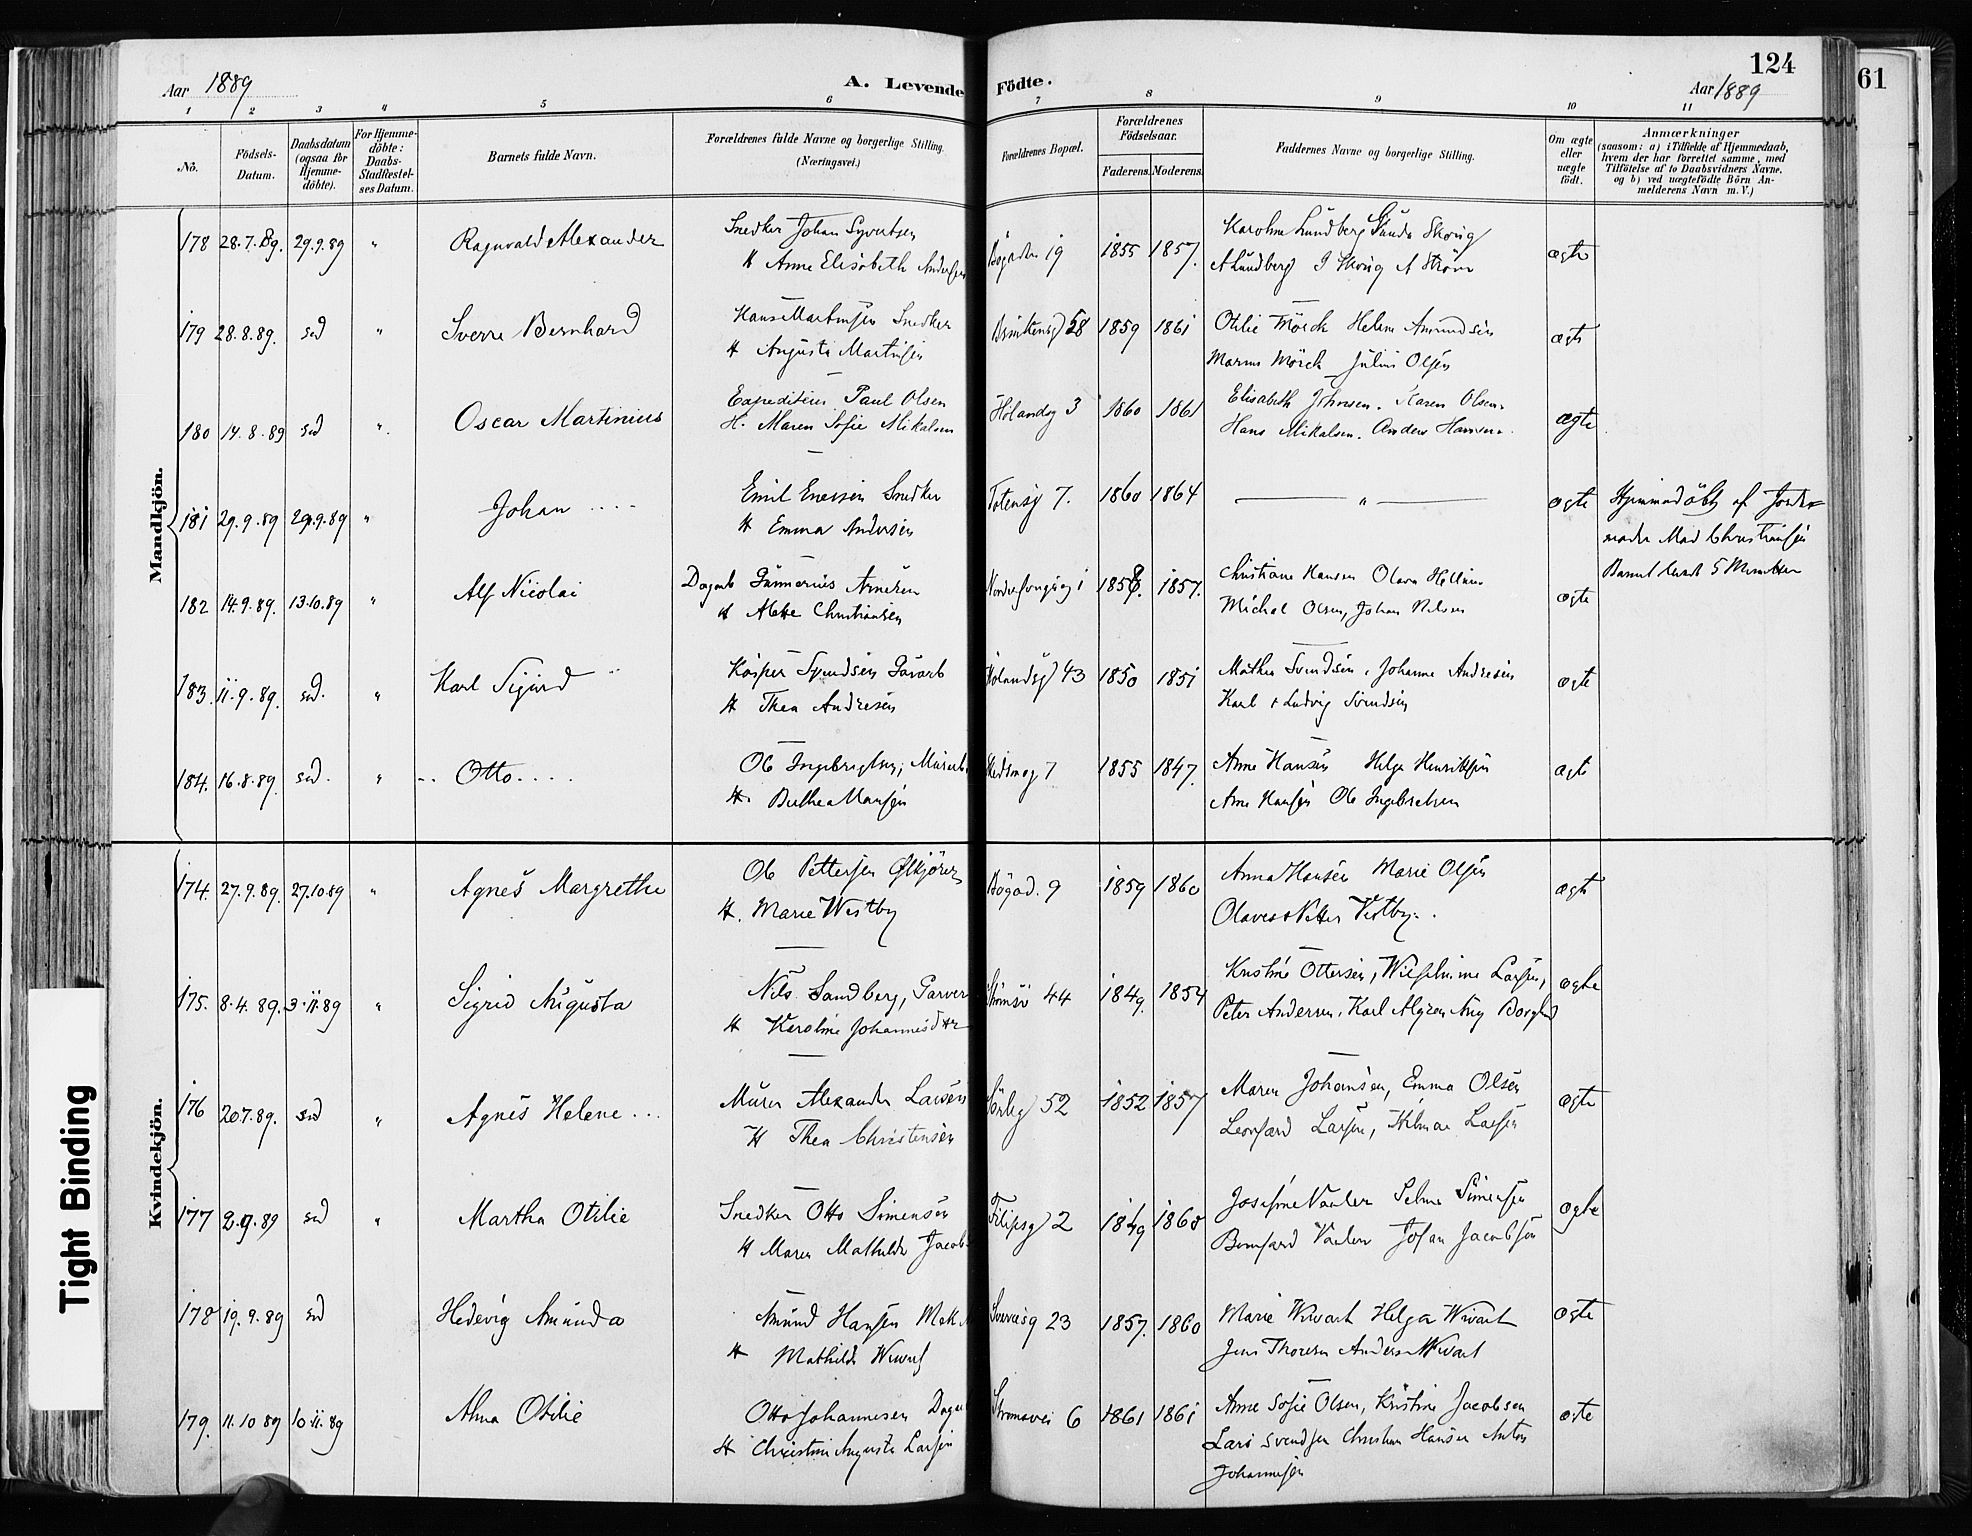 Aar 1889
A. Levende Födte.
124
Aar 1889
61
1 2 3 4 5 6 7 8 9 10 11
No.
Födsels-Datum.
Daabsdatum (ogsaa for Hjemme-döbte).
For Hjemme-döbte: Daabs-Stadfæstel-ses Datum.
Barnets fulde Navn.
Forældrenes fulde Navne og borgerlige Stilling. (Næringsvei.)
Forældrenes Bopæl.
Forældrenes Födselsaar.
Faderens. Moderens.
Faddernes Navne og borgerlige Stilling.
Om ægte eller uægte födt.
Anmærkninger
(saasom: a) i Tilfælde af Hjemmedaab, hvem der har forrettet samme, med Tilföielse af to Daabsvidners Navne. og b) ved uægtefödte Börn An-melderens Navn m. V.)
Mandkjön.
178 28.7.89. 29.9.89 " Ragnvald Alexander Snedker Johan Syvertsen 19 1855 1857. Karoline Lundberg Skoug ægte
H Anne Elisabeth Andersen A Lundberg J Skoug A Ström
179 28.8.89. sed " Sverre Bernhard Hans Martinsen Snedker 58 1859 1861 Otilie Mörck Helene Amundsen ægte
H Augusta Martinsen Marius Mörck Julius Olsen
180 14.8.89 sed " Oscar Martinius Expeditör Paul Olsen Hölandsg 3 1860 1861 Elisabeth Johnsen. Karen Olsen. ægte
H. Maren Sofie Mikalsen Hans Mikalsen. Anders Hansen.
181 29.9.89 29.9.89 " Johan .... Emil Enersen Snedker Totensg 7. 1860 1864 " ægte Hjemmedöbt af Jorde-
H Emma Andersen moder Mad Christiansen
Barnet levede 5 Minutter
182 14.9.89. 13.10.89 " Alf Nicolai Dagarb Gunnerius Arnesen 1 1858. 1857. Christiane Hansen Olava ægte
H Alette Christiansen Michal Olsen, Johan Nilsen
183. 11.9.89. sed. " Karl Sigurd Kasper Svendsen Garvarb Hölandsg 43 1850 1851 Mathea Svendsen, Johanne Andresen ægte
H Thea Andresen Karl + Ludvig Svendsen
184. 16.8.89. sed. " -- Otto.... Ole Ingebrigtsen, Murarb. 7 1855 1847. Anne Hansen Helga Henriksen ægte
H. Berthea Hansen Arne Hansen Ole Ingebretsen
Kvindekjön.
174. 27.9.89. 27.10.89 " Agnes Margrethe Ole Pettersen Ölkjörer Bögad. 9 1859 1860 Anna Hansen Marie Olsen ægte
H. Marie Westby Olaves + Petter Vestby.
175. 8.4.89. 3.11.89 " Sigrid Augusta Nils Sandberg, Garver 44 1849. 1854 Kristine Ottersen, Wilhelmine Larsen, ægte
H Karoline Johannesdtr Peter Andersen, Karl Algren Aug
176 20.7.89. sed " Agnes Helene... Murer Alexander Larsen Sörlig 52 1852 1857 Maren Johansen, Emma Olsen ægte
H Thea Christensen Leonhard Larsen, Hilmar Larsen
177 2.9.89 sed " Martha Otilie Snedker Otto Simensen Filipsg 2 1849 1860 Josefine Selma Simensen ægte
H Maren Mathilde Jacobs Bernhard Johan Jacobsen
178 19.9.89 sed Hedevig Amunda Amund Hansen Mek 23 1857. 1860 Marie Wivart Helga Wivart ægte
H Mathilde Jens Thoresen Anders Wivart
179. 11.10.89 10.11.89 Alma Otilie Otto Johannesen Dagarb 6 1861 1861 Anne Sofie Olsen, Kristine Jacobsen ægte
H Christine Augusta Larsen Lars Svendsen Christian Hansen Anton
Johannesen
Tight Binding